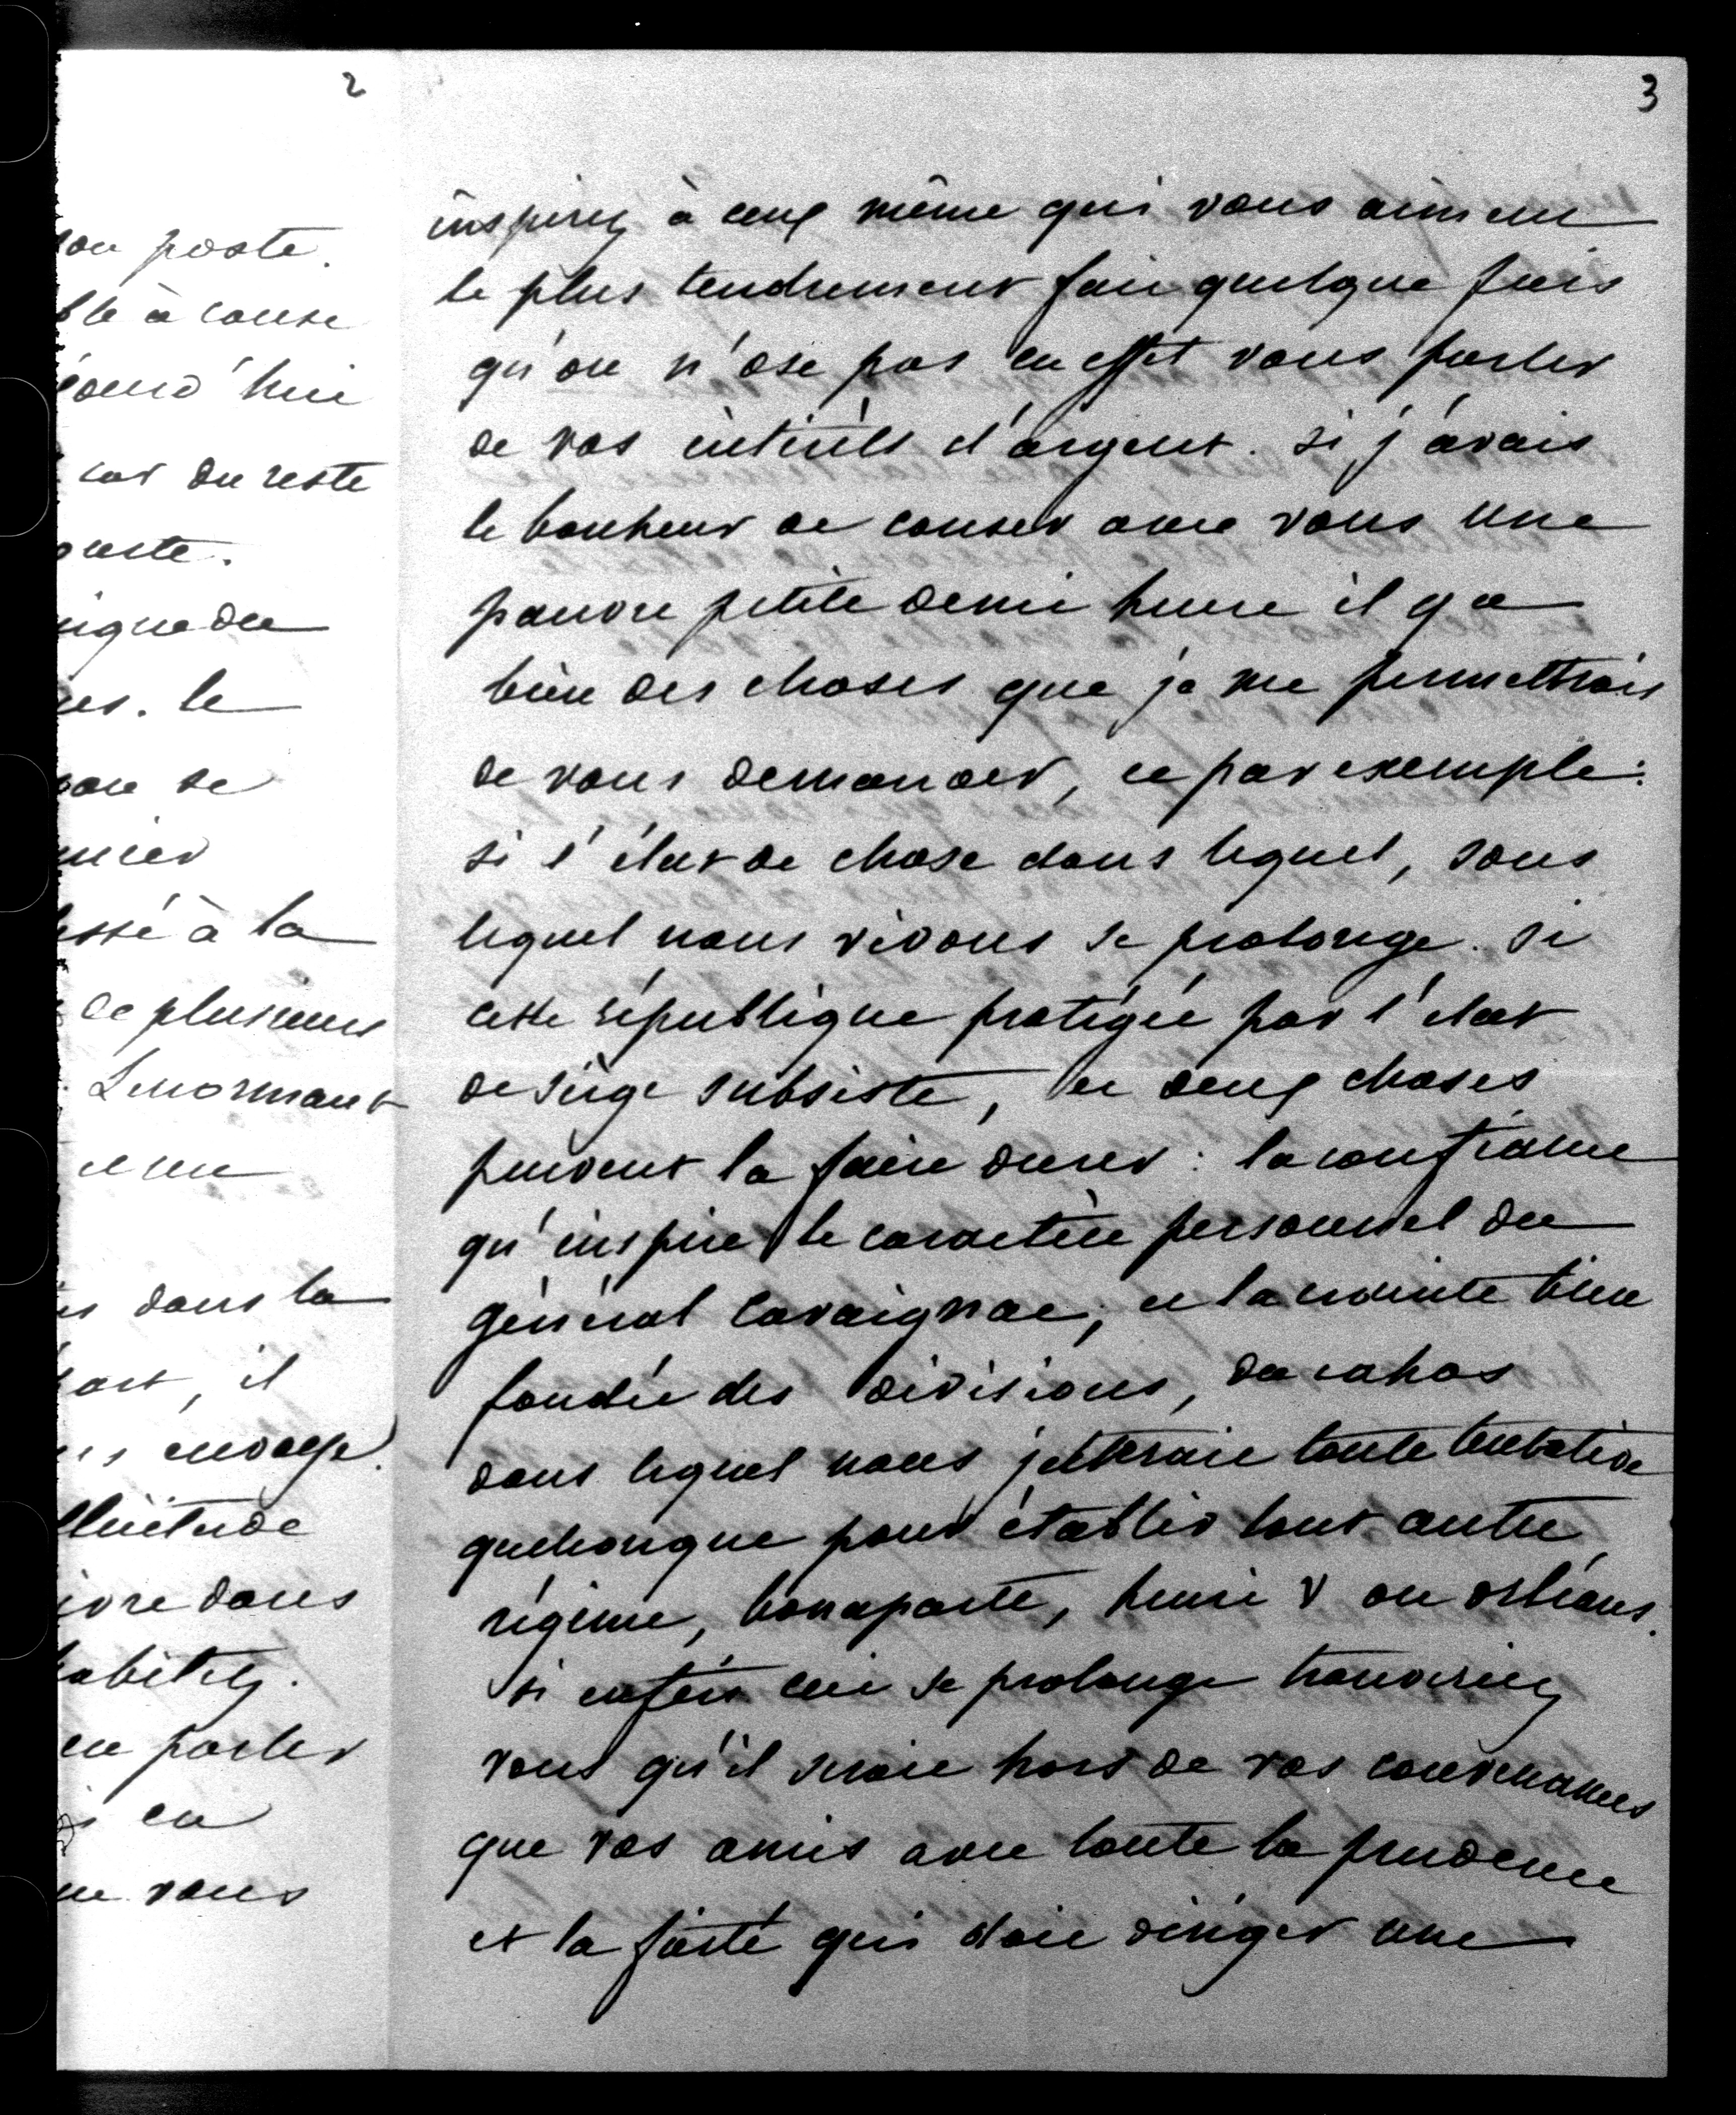 2
on poste.
ble à cause
jourd'hui
car du reste
oute.
ique du
es. le
se
mier
essé à la
de plusieurs
Lenormant
et un
s dans la
part, il
s envoye.
llicitude
ivre dans
habitez.
en parler
en
vous
3
inspirez à ceux même qui vous aiment
le plus tendrement fait quelque fois
qu'on n'ose pas en effet vous parler
de vos intérêts d'argent. si j'avais
le bonheur de causer avec vous une
pauvre petite demi heure il y a
bien des choses que je me permettrais
de vous demander, et par exemple:
si l'état de chose dans lequel, sous
lequel nous vivons se prolonge. si
cette république protégée par l'état
de siège subsiste, et deux choses
peuvent la faire durer: la confiance
qu'inspire le caractère personnel du
général Cavaignac, et la crainte bien
fondée des divisions, du cahos
dans lequel nous jetterait toute tentative
quelconque pour établir tout autre
régime, bonaparte, henri V ou orléans.
si enfin ceci se prolonge trouveriez
vous qu'il serait hors de vos convenances
que vos amis avec toute la prudence
et la fierté qui doit diriger une